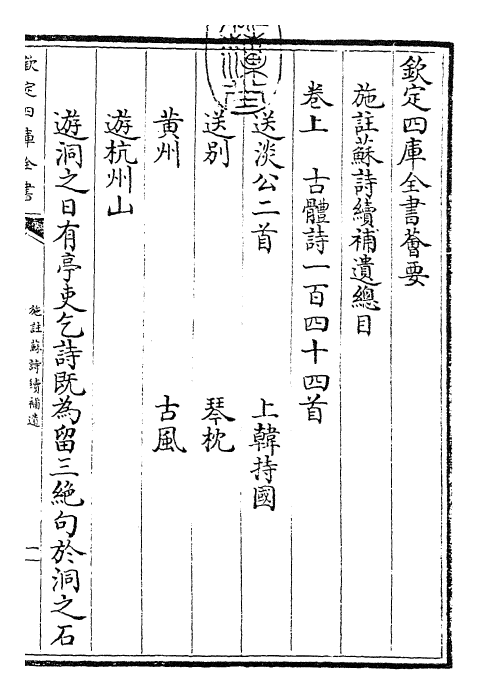 欽定四庫全書薈要
施註蘇詩續補遺總目
卷上　古體詩一百四十四首
送淡公二首　上韓持國
送别　琴枕
黄州　古風
遊杭州山
遊洞之日有亭吏乞詩既為留三絶句於洞之石
欽定四庫全書
施註蘇詩續補遺
一